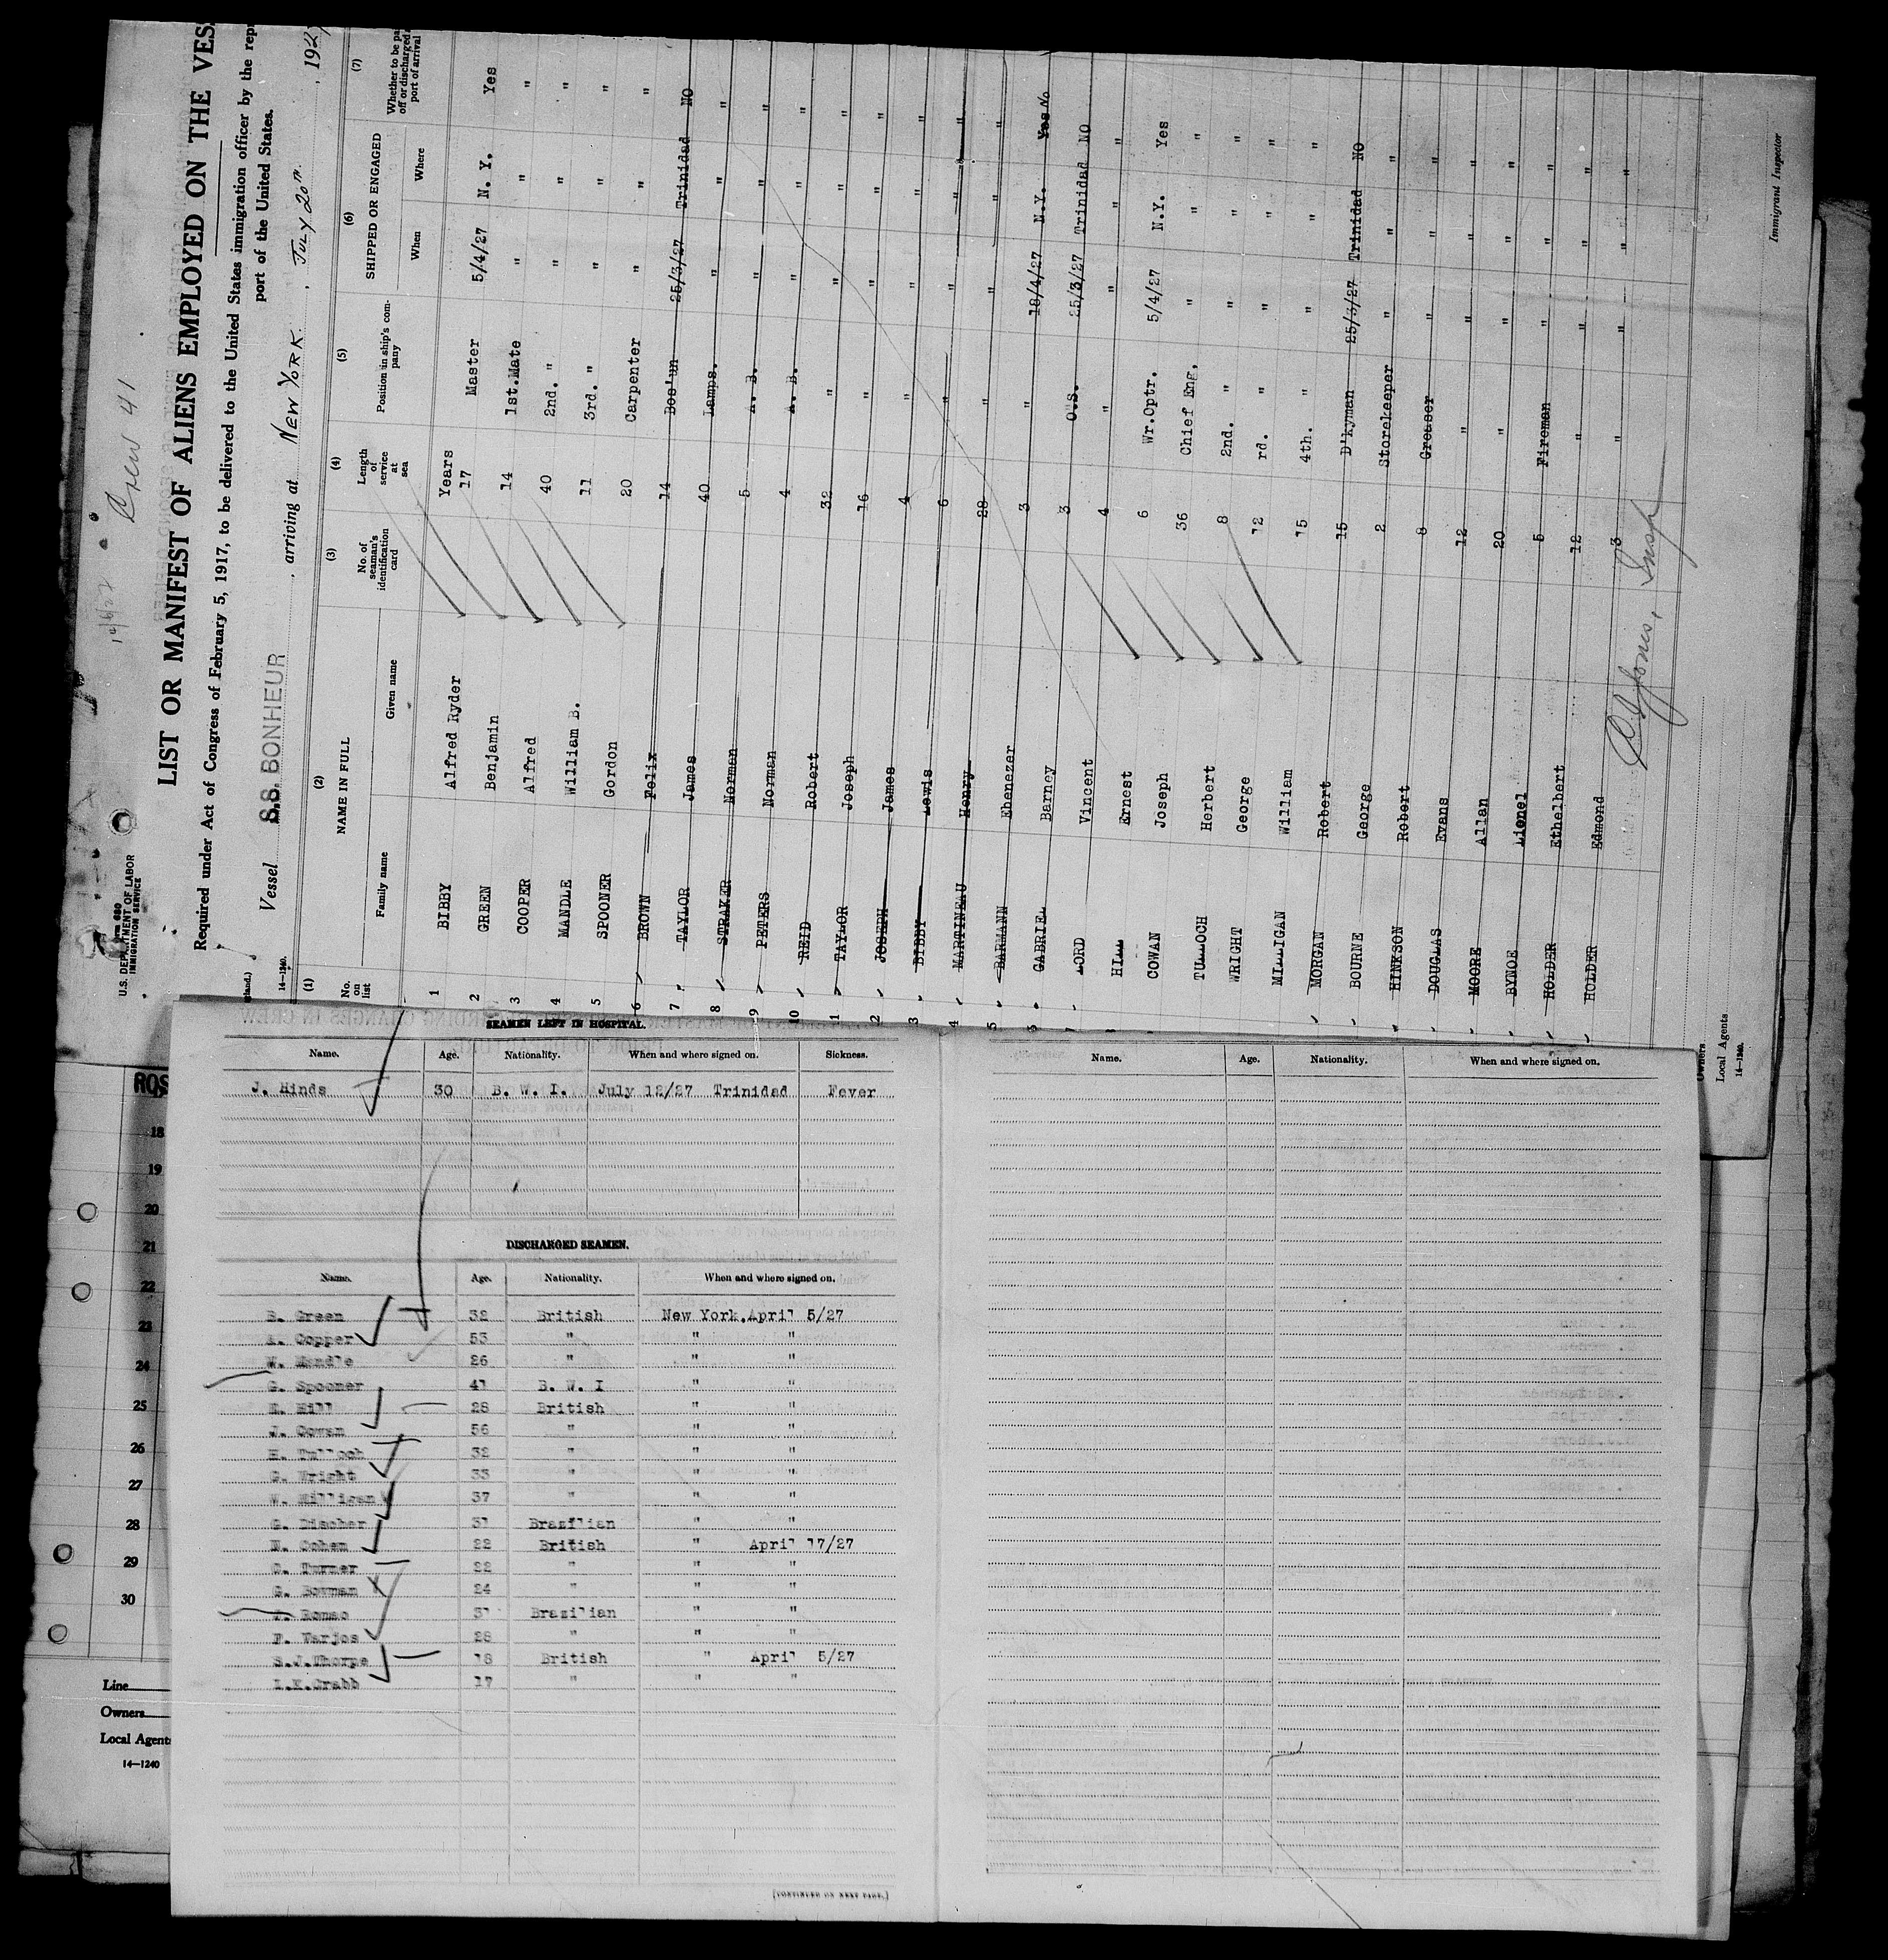 Crew 41
LIST OR MANIFEST OF ALIENS EMPLOYED ON THE VES
Required under Act of Congress of February 5, 1917, to be delivered to the United States immigration officer by the rep
port of the United States.
U.S. DEPARTMENT OF LABOR
IMMIGRATION SERVICE
Vessel S.S. BONHEUR, arriving at NEW YORK, JULY 20TH, 1927
14-1240.
(1) (2) (3) (4) (5) (6) (7)
No. on list NAME IN FULL No. of seaman's identification card Length of service at sea Position in ship's company SHIPPED OR ENGAGED Whether to be pa off or discharged port of arrival
Family name Given name When Where
Years
1 BIBBY Alfred Ryder 17 Master 5/4/27 N. Y. Yes
2 GREEN Benjamin 14 1st.Mate " " "
3 COOPER Alfred 40 2nd. " " " "
4 MANDLE William B. 11 3rd. " " " "
5 SPOONER Gordon 20 Carpenter " " "
6 BROWN Felix 14 Bos'un 25/3/27 Trinidad NO
7 TAYLOR James 40 Lamps. " " "
8 STRAKER Norman 5 A. B. " " "
9 PETERS Norman 4 A. B. " " "
10 REID Robert 32 " " " "
1 TAYLOR Joseph 16 " " " "
2 JOSEPH James 4 " " " "
3 BIBBY Lewis 6 " " " "
4 MARTINEAU Henry 28 " " " "
5 BARMANN Ebenezer 3 " 18/4/27 N.Y. Yes No
6 GABRIEL Barney 3 O.S. 25/3/27 Trinidad NO
7 LORD Vincent 4 " " " "
HILL Ernest 6 Wr.Optr. 5/4/27 N.Y. Yes
COWAN Joseph 36 Chief Eng. " " "
TULLOCH Herbert 8 2nd. " " " "
WRIGHT George 12 rd. " " " "
MILLIGAN William 15 4th. " " " "
MORGAN Robert 15 D'kyman 25/3/27 Trinidad NO
BOURNE George 2 Storekeeper " " "
HINKSON Robert 8 Greaser " " "
DOUGLAS Evans 12 " " " "
MOORE Allan 20 " " " "
BYNOE Lionel 5 Fireman " " "
HOLDER Ethelbert 12 " " " "
HOLDER Edmond 3 " " " "
Jones, Insp
Immigrant Inspector
Owners
Local Agents
14-1240.
SEAMEN LEFT IN HOSPITAL.
Name. Age. Nationality. When and where signed on. Sickness.
J. Hinds 30 B. W. I. July 12/27 Trinidad Fever
DISCHARGED SEAMEN.
Name. Age. Nationality. When and where signed on.
B. Green 32 British New York, April 5/27
A. Copper 53 " " "
W. Mandle 26 " " "
G. Spooner 41 B. W. I " "
E. Hill 28 British " "
J. Cowan 56 " " "
H. Tulloch 32 " " "
G. Wright 33 " " "
W. Milligan 37 " " "
G. Discher 31 Brazilian " "
N. Cohen 22 British " April 17/27
C. Turner 22 " " "
G. Bowman 24 " " "
Romao 31 Brazilian " "
F. Varjos 28 " " "
S.J.Thorpe 18 British " April 5/27
I.K.Crabb 17 " " "
[CONTINUED ON NEXT PAGE.]
Name. Age. Nationality. When and where signed on.
ROS
18
19
20
21
22
23
24
25
26
27
28
29
30
Line
Owners
Local Agents
14—1240